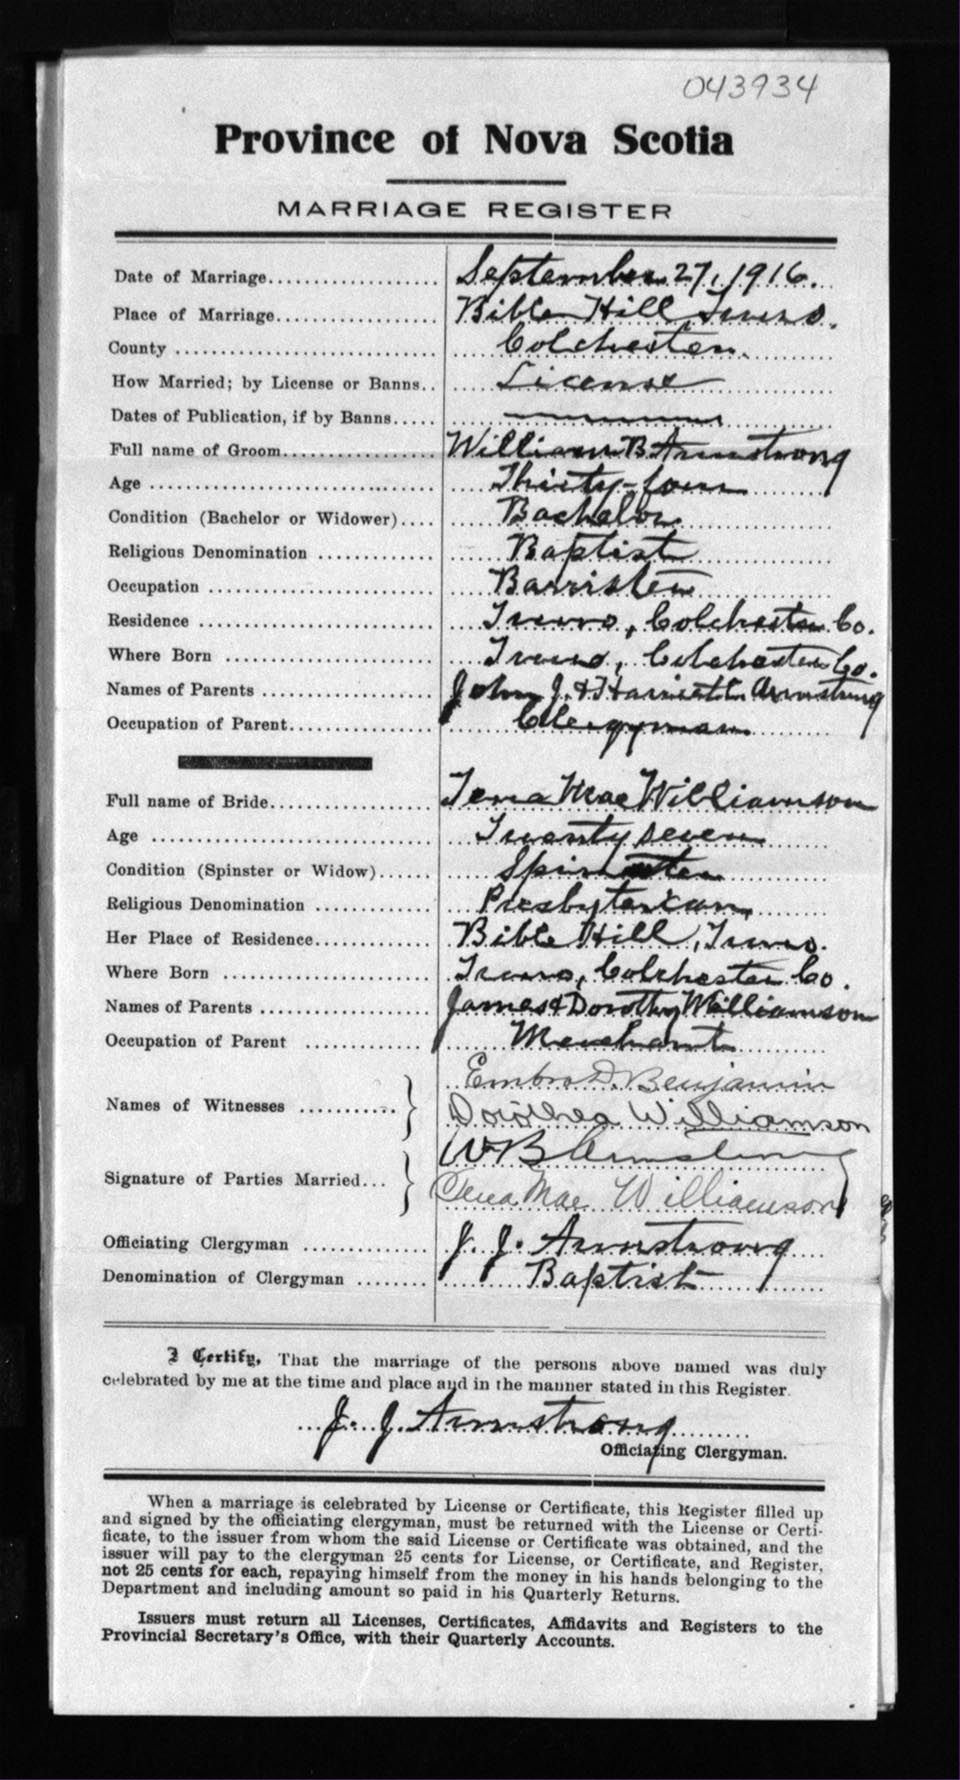 043934
Province of Nova Scotia
MARRIAGE REGISTER
Date of Marriage.................... September 27, 1916.
Place of Marriage................... Bible Hill, Truro.
County ............................. Colchester
How Married; by License or Banns.. License
Dates of Publication, if by Banns.....
Full name of Groom.................. William B. Armstrong
Age ............................... Thirty-four
Condition (Bachelor or Widower).... Bachelor
Religious Denomination ............. Baptist
Occupation ......................... Barrister
Residence .......................... Truro, Colchester Co.
Where Born ........................ Truro, Colchester Co.
Names of Parents ................... John J. & Harriett Armstrong
Occupation of Parent................ Clergyman
Full name of Bride.................. Tena Mae Williamson
Age ............................... Twenty seven
Condition (Spinster or Widow)...... Spinster
Religious Denomination ............. Presbyterian
Her Place of Residence.............. Bible Hill, Truro.
Where Born ........................ Truro, Colchester Co.
Names of Parents ................... James & Dorothy Williamson
Occupation of Parent ............... Merchant
D. Benjamin
Names of Witnesses ............ Dorothea Williamson
W B Armstrong
Signature of Parties Married... Tena Mae Williamson
Officiating Clergyman .............. J. J. Armstrong
Denomination of Clergyman ......... Baptist
I Certify, That the marriage of the persons above named was duly
celebrated by me at the time and place and in the manner stated in this Register.
J. J. Armstrong
Officiating Clergyman.
When a marriage is celebrated by License or Certificate, this Register filled up
and signed by the officiating clergyman, must be returned with the License or Certi-
ficate, to the issuer from whom the said License or Certificate was obtained, and the
issuer will pay to the clergyman 25 cents for License, or Certificate, and Register,
not 25 cents for each, repaying himself from the money in his hands belonging to the
Department and including amount so paid in his Quarterly Returns.
Issuers must return all Licenses, Certificates, Affidavits and Registers to the
Provincial Secretary's Office, with their Quarterly Accounts.